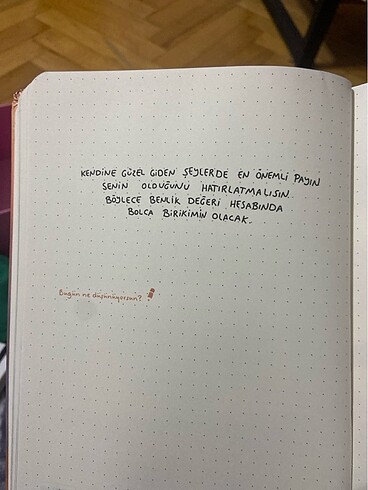 KENDİNE GÜZEL GİDEN ŞEYLERDE EN ÖNEMLİ PAYIN
SENİN OLDUĞUNU HATIRLATMALISIN.
BÖYLECE BENLİK DEĞERİ HESABINDA
BOLCA BİRİKİMİN OLACAK.
Bugün ne düşünüyorsun?